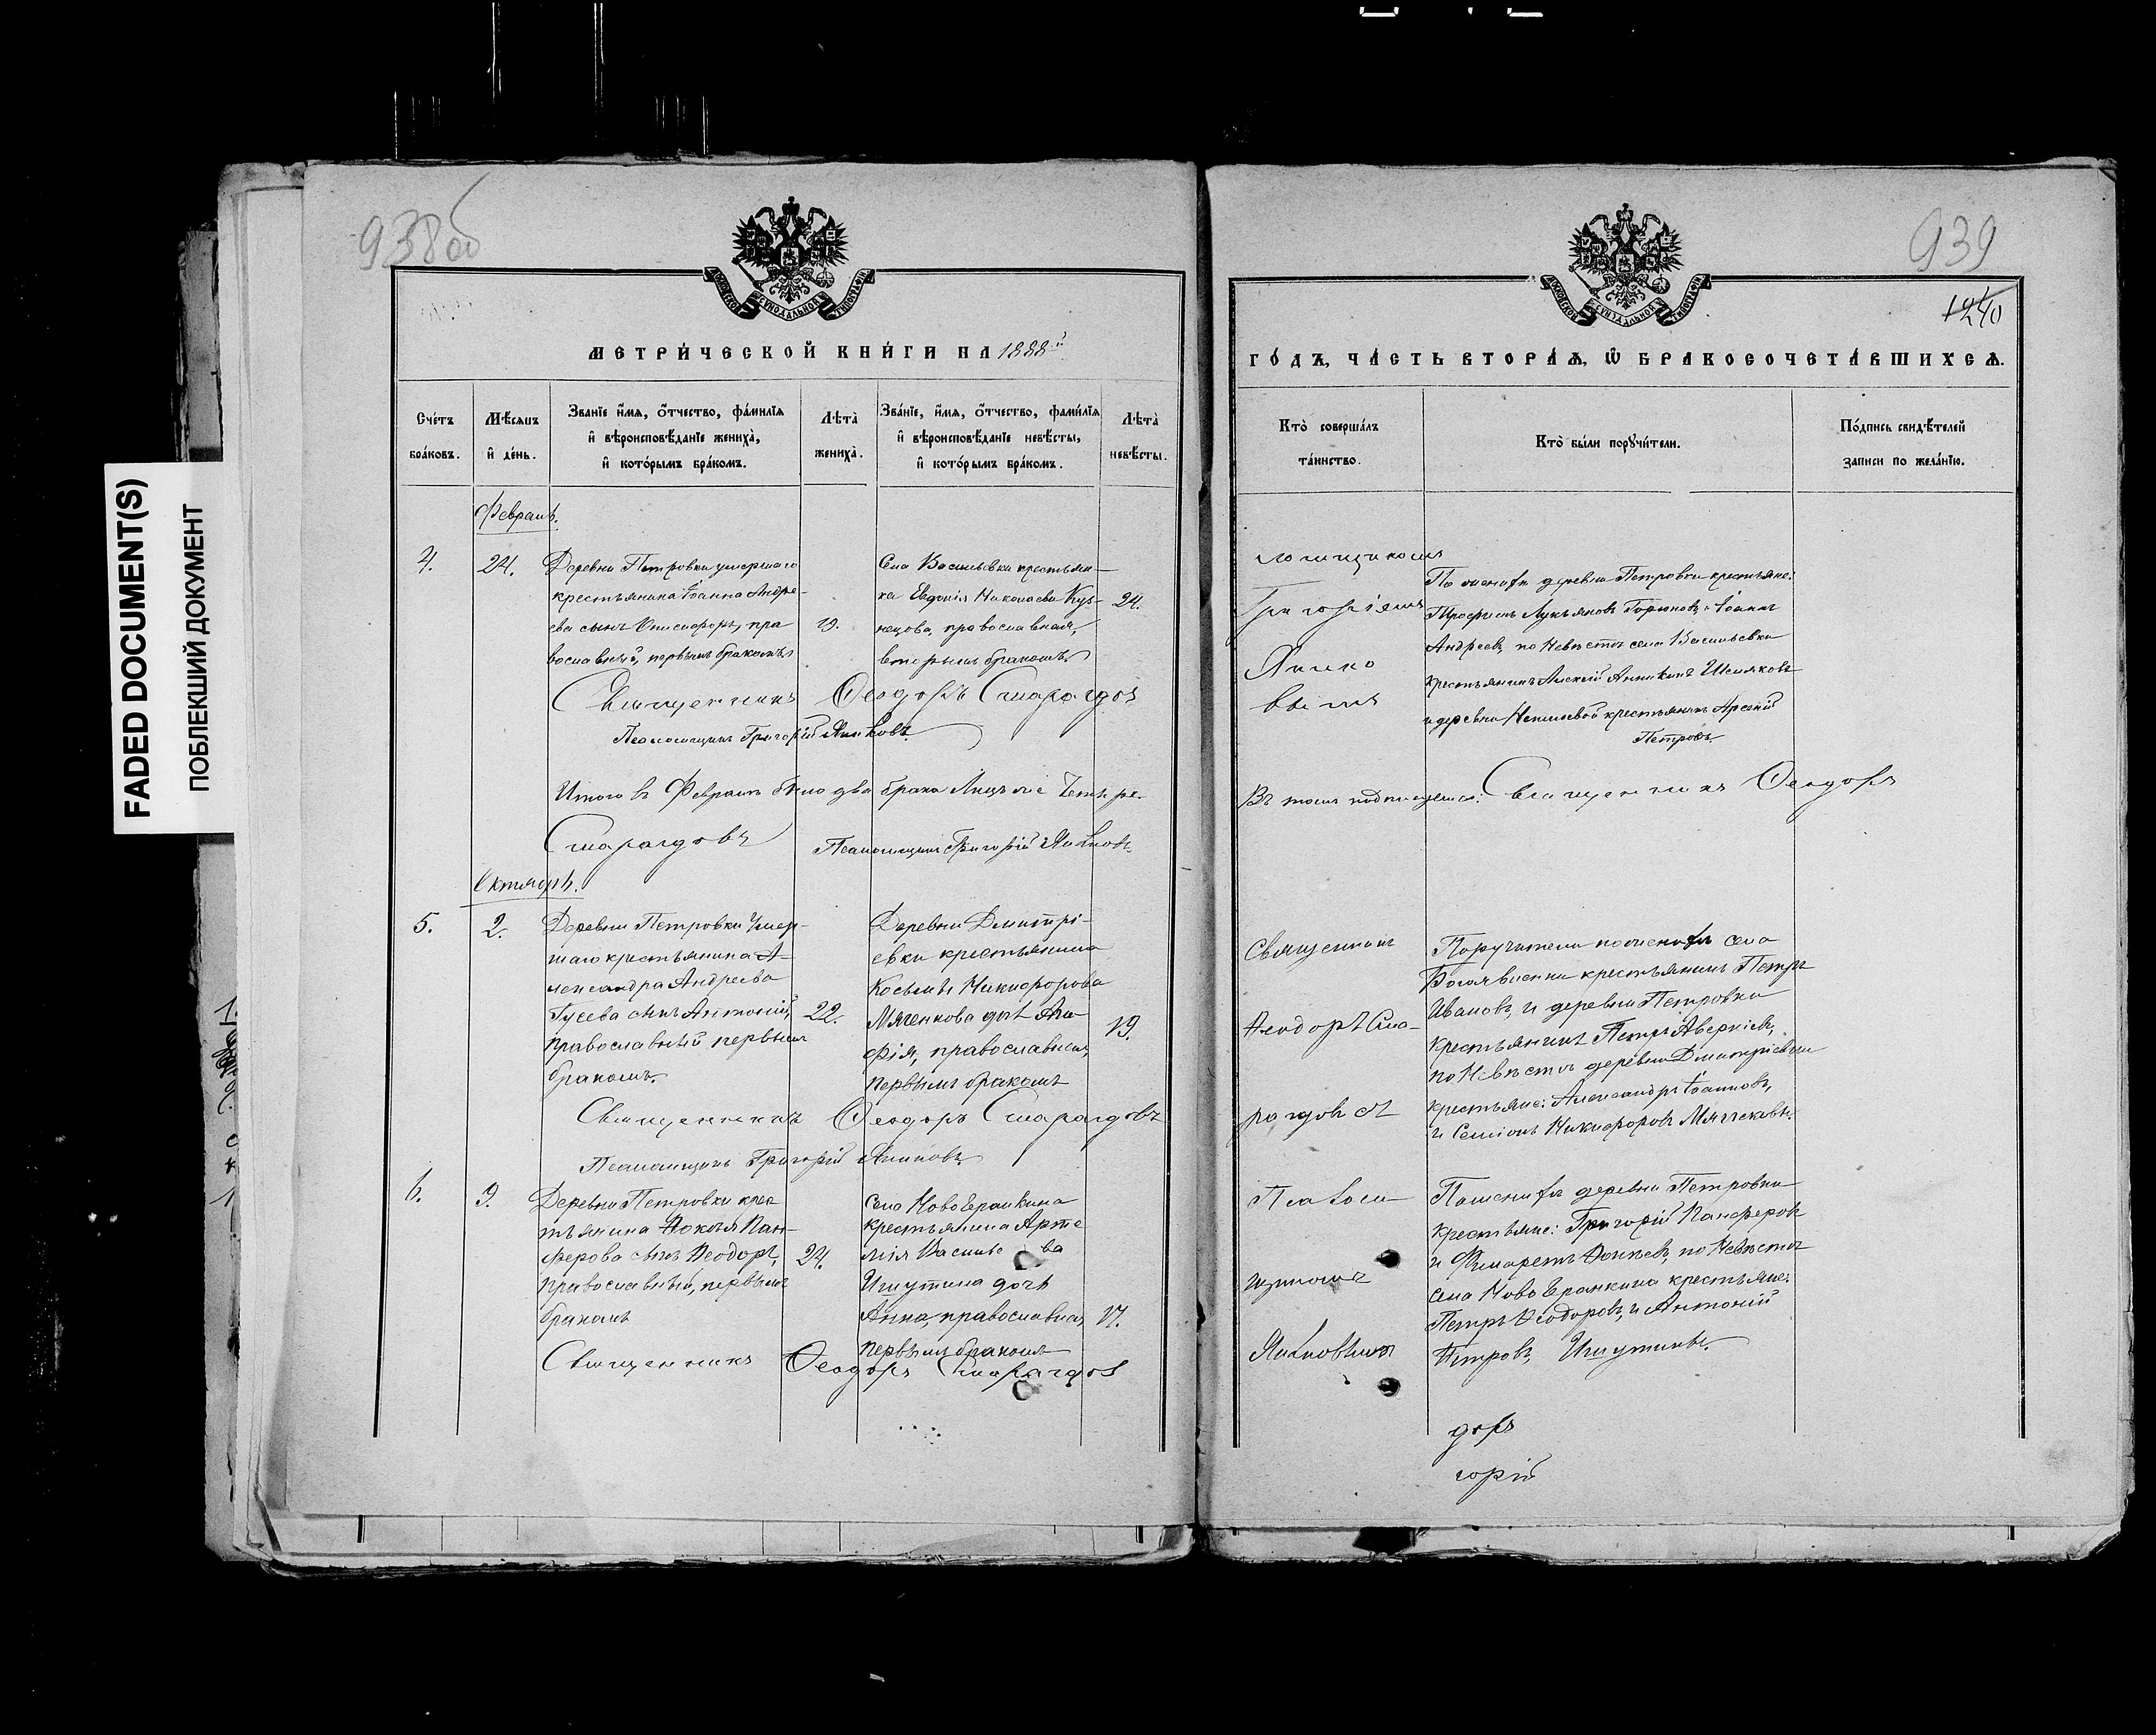 FADED DOCUMENT(S)
ПОБЛЕКШИЙ ДОКУМЕНТ
938об
МЕТРИЧЕСКОЙ КНИГИ НА 1888й
Счетъ браковъ.
Мѣсяцъ и день.
Званіе имя, отчество, фамилія и вѣроисповѣданіе жениха, и которымъ бракомъ.
Лѣта жениха.
Званіе, имя, отчество, фамилія и вѣроисповѣданіе невѣсты, и которымъ бракомъ.
Лѣта невѣсты.
Февраль.
4.
24.
Деревни Петровки умершаго
крестьянина Іоанна Андре-
ева сынъ Онисифоръ, пра
вославный, первымъ бракомъ
19.
Села Васильевки крестьян-
ка Евдокія Николаева Куз-
нецова, православная,
вторымъ бракомъ.
24.
Священникъ Ѳеодоръ Смарагдов
Псаломщикъ Григорій
Итого въ Февралѣ было два брака
Смарагдовъ
Псаломщикъ Григорій
Октябрь.
5.
2.
Деревни Петровки Умер-
шаго крестьянина А-
лександра Андреева
Гусева сынъ Антоній,
православный первымъ
бракомъ.
22.
Деревни Дмитрі-
евки крестьянина
Косьмы Никифорова
Мягчекова дочь
православная,
первымъ бракомъ
19.
Священникъ Ѳеодоръ Смарагдовъ
Псаломщикъ Григорій
6.
9.
Деревни Петровки крес
тьянина Ѳокія Пан-
ферова сынъ Ѳеодоръ,
православный, первымъ
бракомъ
24.
Села Ново Еранкина
крестьянина Арте
мія Василье ва
Ишутина дочь
Анна, православная
первымъ бракомъ
17.
Священникъ Ѳеодоръ Смарагдов
939
1240
ГОДЪ, ЧАСТЬ ВТОРАЯ, Ѡ БРАКОСОЧЕТАВШИХСЯ.
Кто совершалъ таинство.
Кто были поручители.
Подпись свидѣтелей записи по желанію.
ломщикомъ
Григоріемъ
вымъ
По женихѣ деревни Петровки крестьяне:
Трофимъ Лукьяновъ Горюновъ и Іоаннъ
Андреевъ, по Невѣстѣ села Васильевки
крестьянинъ Алексій
и деревни крестьянинъ Арсеній
Петровъ.
Въ томъ подписуемся: Священникъ Ѳеодоръ
Священникомъ
Ѳеодоръ Сма-
рагдов
Поручители по женихѣ села
Богоявленки крестьянинъ Петръ
Ивановъ, и деревни Петровки
крестьянинъ Петръ Аверкіевъ,
по Невѣстѣ деревни Дмитріевки
крестьяне: Александръ Іоанновъ,
и Симіонъ Никифоровъ Мягчековы.
Псалом
щикомъ
По женихѣ деревни Петровки
крестьяне: Григорій Панферовъ
и Филаретъ Ѳокіевъ, по Невѣстѣ
села Ново Еранкина крестьяне:
Петръ Ѳеодоровъ, и Антоній
Петровъ, Ишутины.
доръ
горій